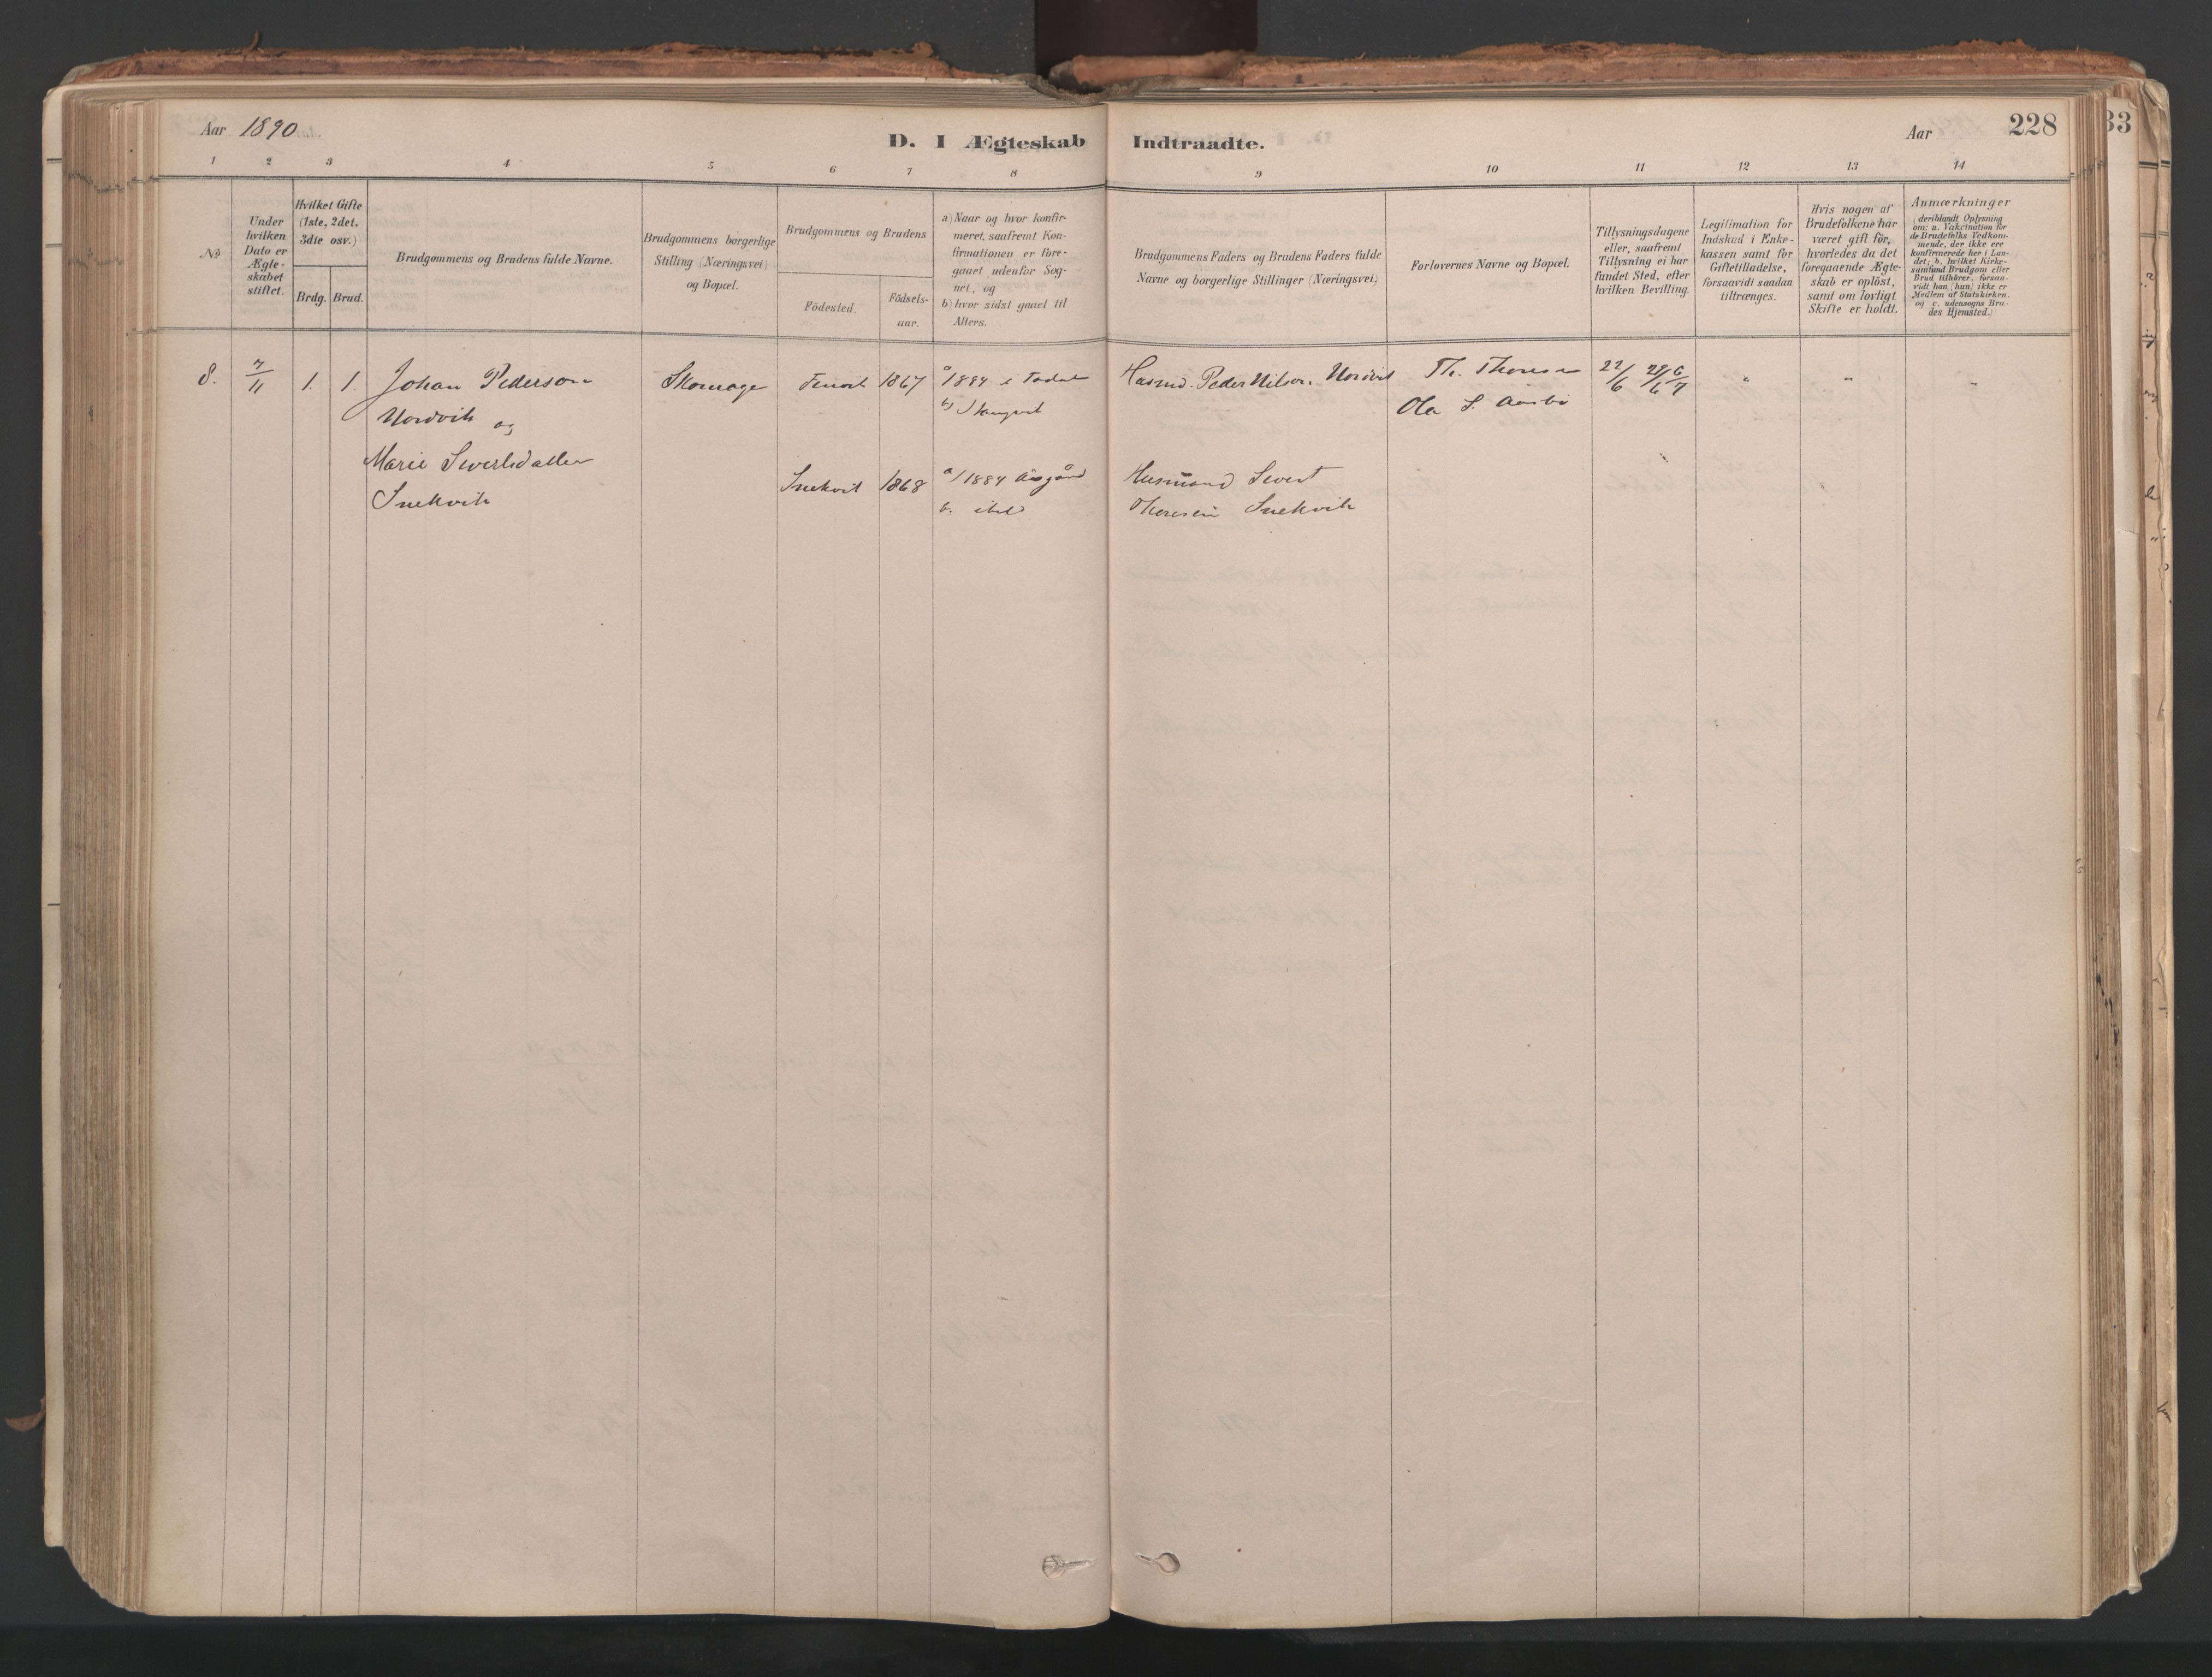 Aar 1890
D. I Ægteskab Indtraadte.
Aar 228
33
1 2 3 4 5 6 7 8 9 10 11 12 13 14
No
Under hvilken Dato er Ægte-skabet stiftet.
Hvilket Gifte (1ste, 2det, 3die osv.)
Brdg. Brud.
Brudgommens og Brudens fulde Navne.
Brudgommens borgerlige Stilling (Næringsvei) og Bopæl.
Brudgommens og Brudens
Födested.
Födsels-aar.
a) Naar og hvor konfir-
meret, saafremt Kon-
firmationen er fore-
gaaet udenfor Sog-
net, og
b) hvor sidst gaaet til
Alters.
Brudgommens Faders og Brudens Faders fulde
Navne og borgerlige Stillinger (Næringsvei)
Forlovernes Navne og Bopæl.
Tillysningsdagene
eller, saafremt
Tillysning ei har
fundet Sted, efter
hvilken Bevilling.
Legitimation for
Indskud i Enke-
kassen samt for
Giftetilladelse,
forsaavidt saadan
tiltrænges.
Hvis nogen af
Brudefolkene har
været gift för,
hvorledes da det
foregaaende Ægte-
skab er oplöst,
samt om lovligt
Skifte er holdt.
Anmærkninger
(deriblandt Oplysning
om: a. Vaksination for
de Brudefolks Vedkom-
mende, der ikke ere
konfirmerede her i Lan-
det; b. hvilket Kirke-
samfund Brudgom eller
Brud tilhörer, forsaa-
vidt han (hun) ikke er
Medlem af Statskirken,
og c. udensogns Bru-
des Hjemsted.)
8. 7/11 1. 1. Johan Pederson 1867 a 1884 i Husmd. Peder Nilsen Nordvik Th. Thoresen 22/6 29/6 6/7 " " "
Nordvik og b) Ola S.
Marie Sivertsdatter
Snekvik Snekvik 1868 a) 1884 Aasgård Husmand Sivert
b. ibid Snekvik